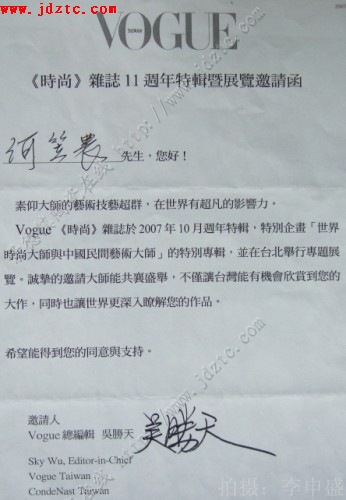 www.jdztc.com
VOGUE
TAIWAN
《時尚》雜誌11週年特輯暨展覽邀請函
何笠農 先生，您好！
素仰大師的藝術技藝超群，在世界有超凡的影響力。
Vogue《時尚》雜誌於2007年10月週年特輯，特別企畫「世界
時尚大師與中國民間藝術大師」的特別專輯，並在台北舉行專題展
覽。誠摯的邀請大師能共襄盛舉，不僅讓台灣能有機會欣賞到您的
大作，同時也讓世界更深入瞭解您的作品。
希望能得到您的同意與支持。
邀請人
Vogue 總編輯 吳勝天
吳勝天
Sky Wu, Editor-in-Chief
Vogue Taiwan
CondeNast Taiwan
拍攝：李申盛